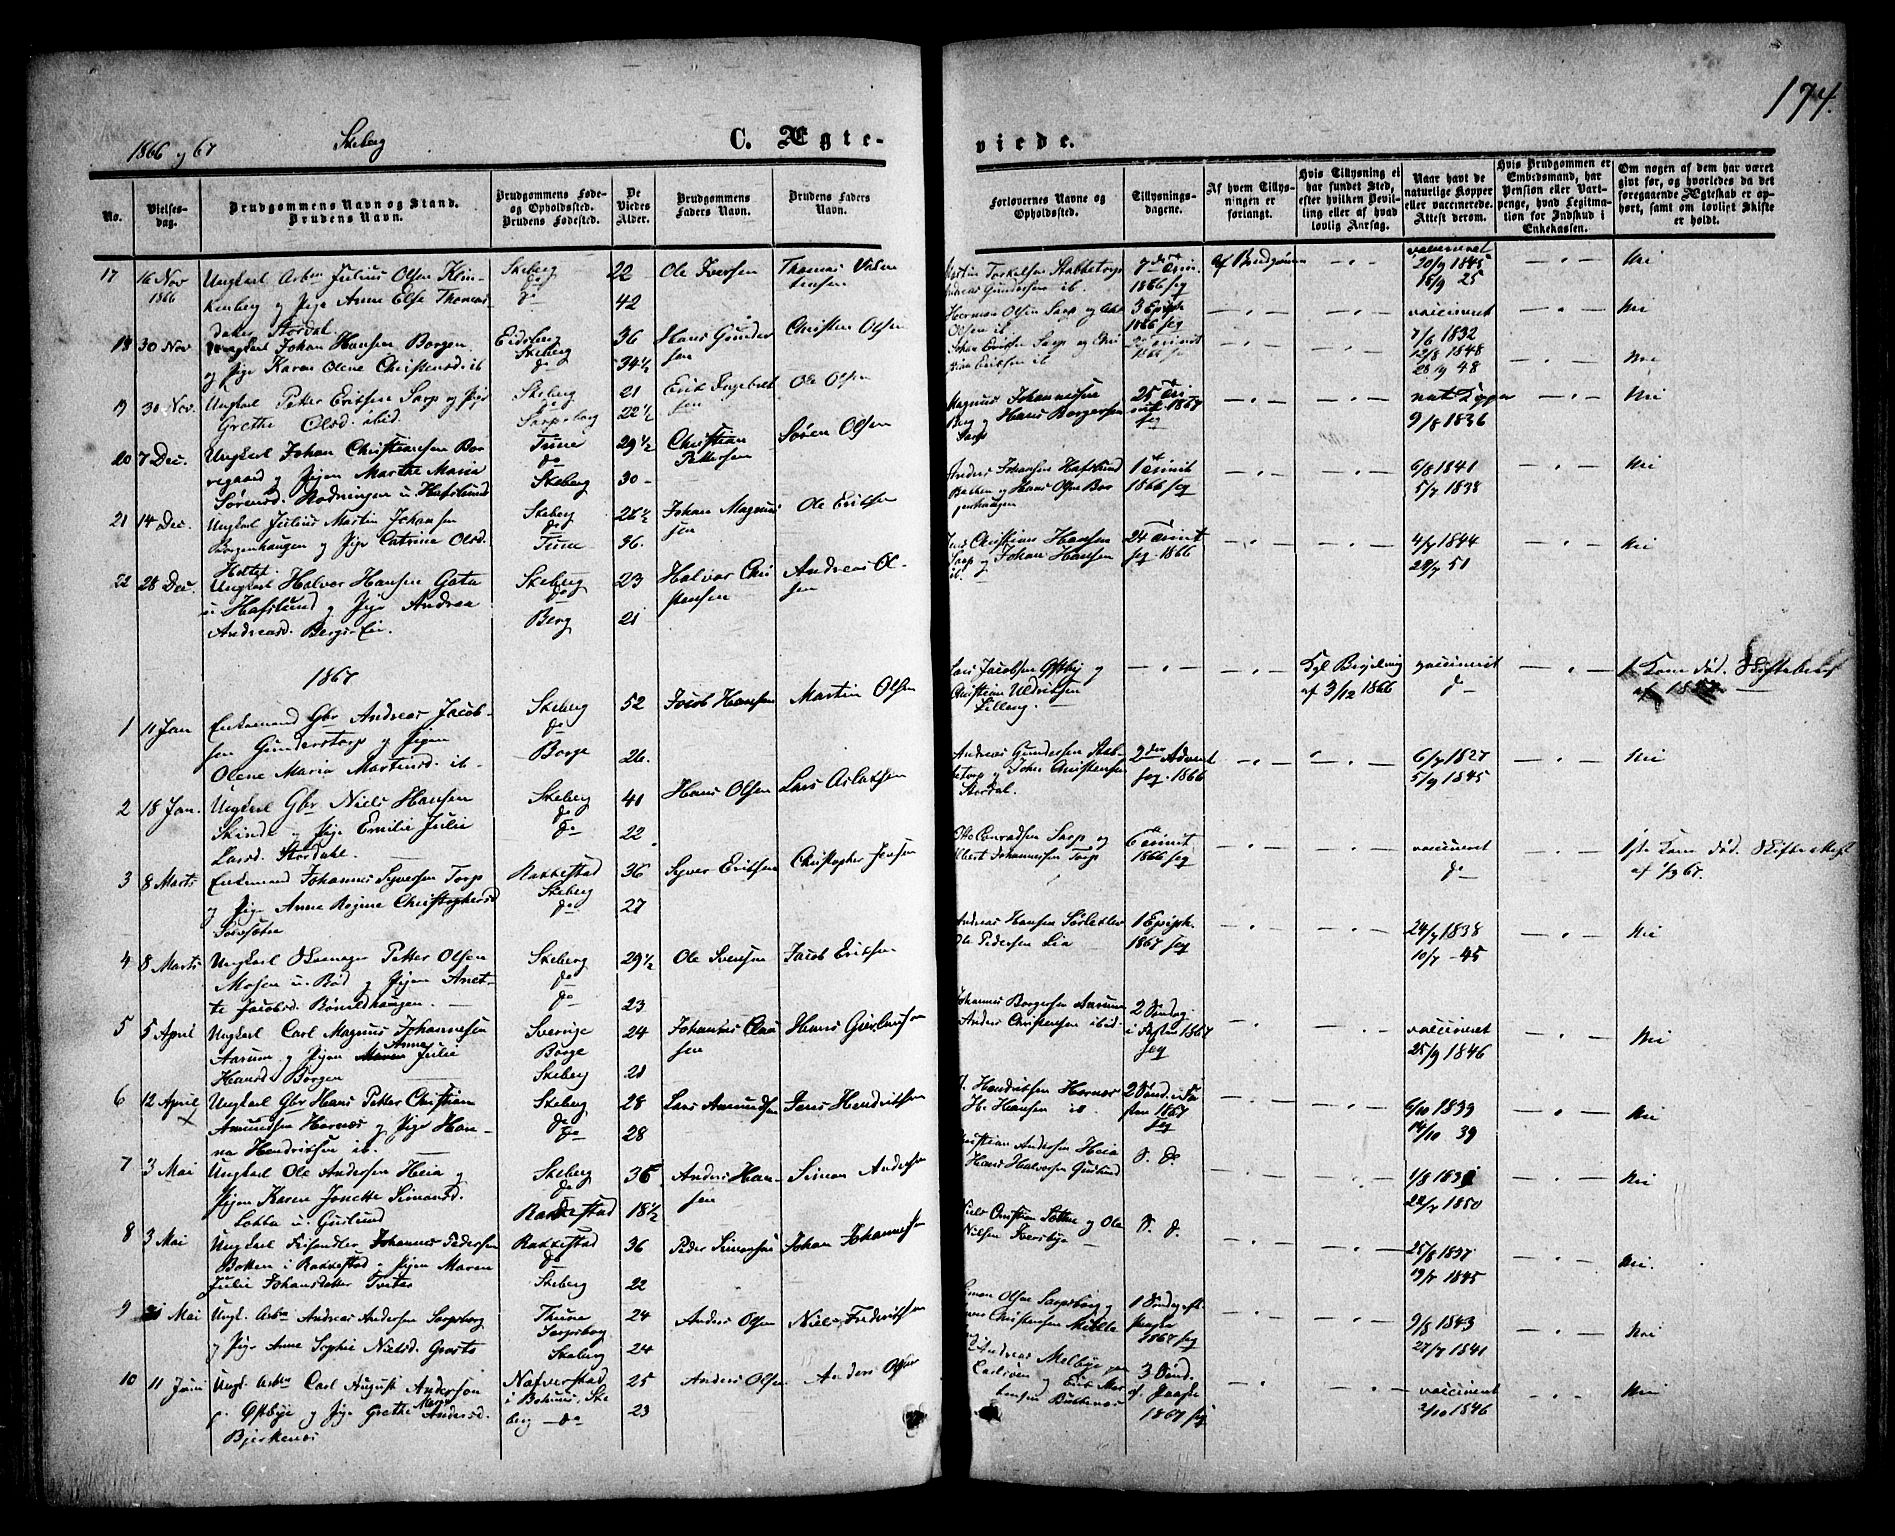 174.
1866 og 67 Skeberg C. Ægteviede.
No.
Vielsesdag.
Brudgommens Navn og Stand.
Brudens Navn.
Brudgommens Fødeog Opholdssted.
Brudens Fødested.
De Viedes Alder.
Brudgommens Faders Navn.
Brudens Faders Navn.
Forlovernes Navne og Opholdssted.
Tillysningsdagene.
Af hvem Tillysningen er forlangt.
Hvis Tillysning ei har fundet Sted, efter hvilken Bevilling eller af hvad lovlig Aarsag.
Naar havt de naturlige Kopper eller vaccinerede. Attest derom.
Hvis Brudgommen er Embedsmand, har Pension eller Vartpenge, hvad Legitimation for Indskud i Enkekassen.
Om nogen af dem har været givt før, og hvorledes da det foregaaende Ægteskab er ophørt, samt om lovligt Skifte er holdt.
17 16 Nov 1866 Ungkarl Arbm Julius Olsen Klinkenberg og Pige Anne Else Thomasdatter Stordal. Skeberg do do 22 42 Ole Iversen Thomas
Martin Torkelsen Stabbetorp Andreas Gundersen ib 1866 seq Af Brudgommen vaccineret 20/9 1845 16/9 25 Nei
18 30 Nov Ungkarl Johan Hansen Borgen og Pige Karen Olene Christensd. ib Eidsberg Skeberg do 36 34 1/2 Hans Gundersen Christen Olsen
Herman Olsen Sarp og Olsen ib 3 Epiph 1866 seq vaccineret 7/6 1832 Nei
19 30 Nov. Ungkarl Petter Eriksen Sarp og Pige Grethe Olsd. ibid. Skeberg do Sarpsborg 21 22 1/2 Erik Engebretsen Ole Olsen
Johan Eriksen Sarp og Eriksen ib 12/8 1848 28/9 48 Nei
20 7 Dec. Ungkarl Johan Christiansen Borregaard og Pigen Marthe Maria Sørensd. Rodningen u. Hafslund Tune do Skeberg 29 1/2 30 Christian Pettersen Søren Olsen
Magnus Johannesen Berg og Hans Borgersen Sarp 25 Trinit 1867 seq nat. Kopper 9/8 1836 Nei
21 14 Dec. Ungkarl Julius Martin Johansen Borgenhaugen og Pige Catrine Olsd. Skeberg do Tune 26 1/2 36. Johan Magnussen Ole Eriksen
Anders Johansen Hafslund Bakken og Hans Olsen Borgenhaugen 1 Trinit 1866 seq 6/8 1841 5/7 1838 Nei
22 28 Dec. Ungkarl Halvor Hansen Gata u. Hafslund og Pige Andrea Andreasd. Bergs-Eie. Skeberg do Berg 23 21 Halvor Christensen Andreas Olsen
Christian Hansen Sarp og Johan Hansen ib. 24 Trinit seq 1866 4/7 1844 28/7 51 Nei
1867
1 11 Jan Enkemand Gbr Andreas Jacobsen Gunderstorp og Pigen Olene Maria Martinsd. ib. Skeberg do Borge 52 26. Jacob Hansen Martin Olsen
Lars Jacobsen Østby og Christian Uldriksen Lilleng. Kgl Bevilling af 3/12 1866 vaccineret do Kone død. Skifteattest
2 18 Jan. Ungkarl Gbr Niels Hansen og Pige Emilie Julie Larsd. Stordahl. Skeberg do do 41 22 Hans Olsen Lars Aslaksen
Andreas Gundersen Stabbetorp og Johan Christensen Stordal. 2den Advent seq. 1866 6/7 1827 5/9 1845 Nei
3 8 Marts Enkemand Johannes Syversen Torp og Pige Anne Regine Christophersd Rakkestad Skeberg do 36 27 Syver Eriksen Christopher Jensen
Otto Conradsen Sarp og Albert Johannesen Torp 6 Trinit 1866 seq vaccineret do 1ste Kone død. Skifteattest af 1/3 67.
4 8 Marts Ungkarl Skomager Petter Olsen Mosen u. Rød og Pigen Anette Jacobsd. Skeberg do do 29 1/2 23 Ole Svensen Jacob Eriksen
Andreas Hansen Ole Pedersen Lia 1 Epiph. 1867 seq 24/7 1838 10/7 -45 Nei
5 5 April Ungkarl Carl Magnus Johannesen Aarum og Pigen Anne Julie Hansd. Borgen Sverrige Borge Skeberg 24 21 Johannes Claussen Hans
Johannes Borgersen Aarum Anders Christensen ibid 2 Søndag i Fasten 1867 seq vaccineret 25/9 1846 Nei
6 12 April Ungkarl Gbr Hans Petter Christian Amundsen Hornæs og Pige Hanna Hendriksen ib. Skeberg do do 28 28 Lars Amundsen Jens Hendriksen
Hendriksen Hornæs H. Hansen ib. 2 Sønd. i Fasten 1867 seq 6/10 1839 14/10 39 Nei
7 3 Mai Ungkarl Ole Andersen Heia og Pigen Karen Jonette Simensd. Løkka u. Guslund Skeberg do Rakkestad 36 18 1/2 Anders Hansen Simen Andersen
Christian Andersen Heia Hans Halvorsen Guslund S. D. 1/8 22/7 1850 Nei
8 3 Mai Ungkarl Johannes Pedersen Bakken i Rakkestad og Pigen Maren Julie Johansdatter Tveter Rakkestad do Skeberg 36 22 Peder Simensen Johan Johannesen
Niels Christian og Ole Nielsen Iversbye S. D. 25/8 1837 19/7 1845 Nei.
9 Mai Ungk. Arbm Andreas Andersen Sarpsborg og Pige Anne Sophie Nielsd. Thune Sarpsborg Skeberg 24 24 Anders Olsen Niels Fredriksen
Simon Olsen Sarpsborg Christensen 1 Søndag eft. Paaske 1867 seq 9/8 1843 27/7 1841 Nei
10 11 Juni Ungk. Arbm Carl August Anderson p. Østbye og Pige Grethe Marie Andersd. Bjerkenæs Nafverstad i Bohus, Skeberg do 25 23 Anders Olsen Anders Olsen
Andreas Melbye og Erik Martensen 3 Sønd. ef. Paaske 1867 seq vaccineret 2/10 1846 Nei